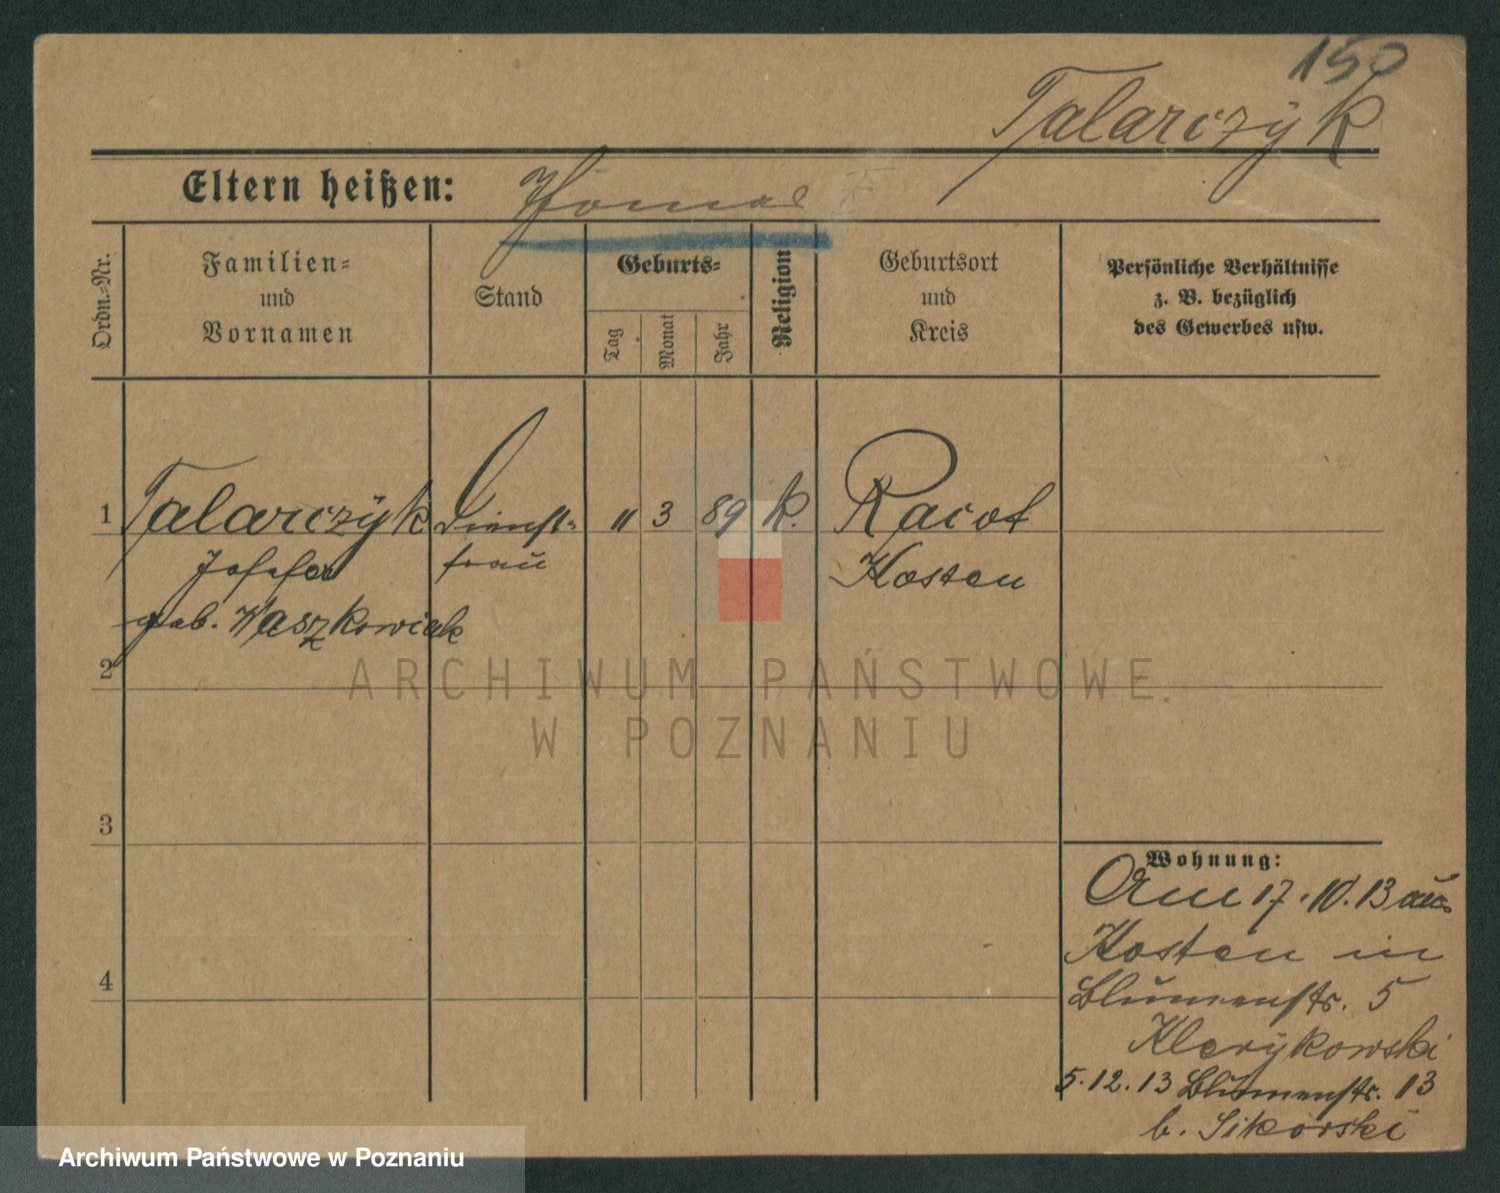 150
Talarczyk
Eltern heißen: Thomas
Ordn.-Nr.
Familien-
und
Vornamen
Stand
Geburts-
Tag
Monat
Jahr
Religion
Geburtsort
und
Kreis
Persönliche Verhältnisse
z. B. bezüglich
des Gewerbes usw.
1 Talarczÿk Dienst- 11 3 89 k. Racot
Josefa frau Kosten
geb. Waszkowiak
2
3
4
Wohnung:
Am 17.10.13 aus
Kosten in
Blumenstr. 5
Klerÿkowski
5.12.13 Blumenstr. 13
b. Sikorski
ARCHIWUM PAŃSTWOWE
W POZNANIU
Archiwum Państwowe w Poznaniu